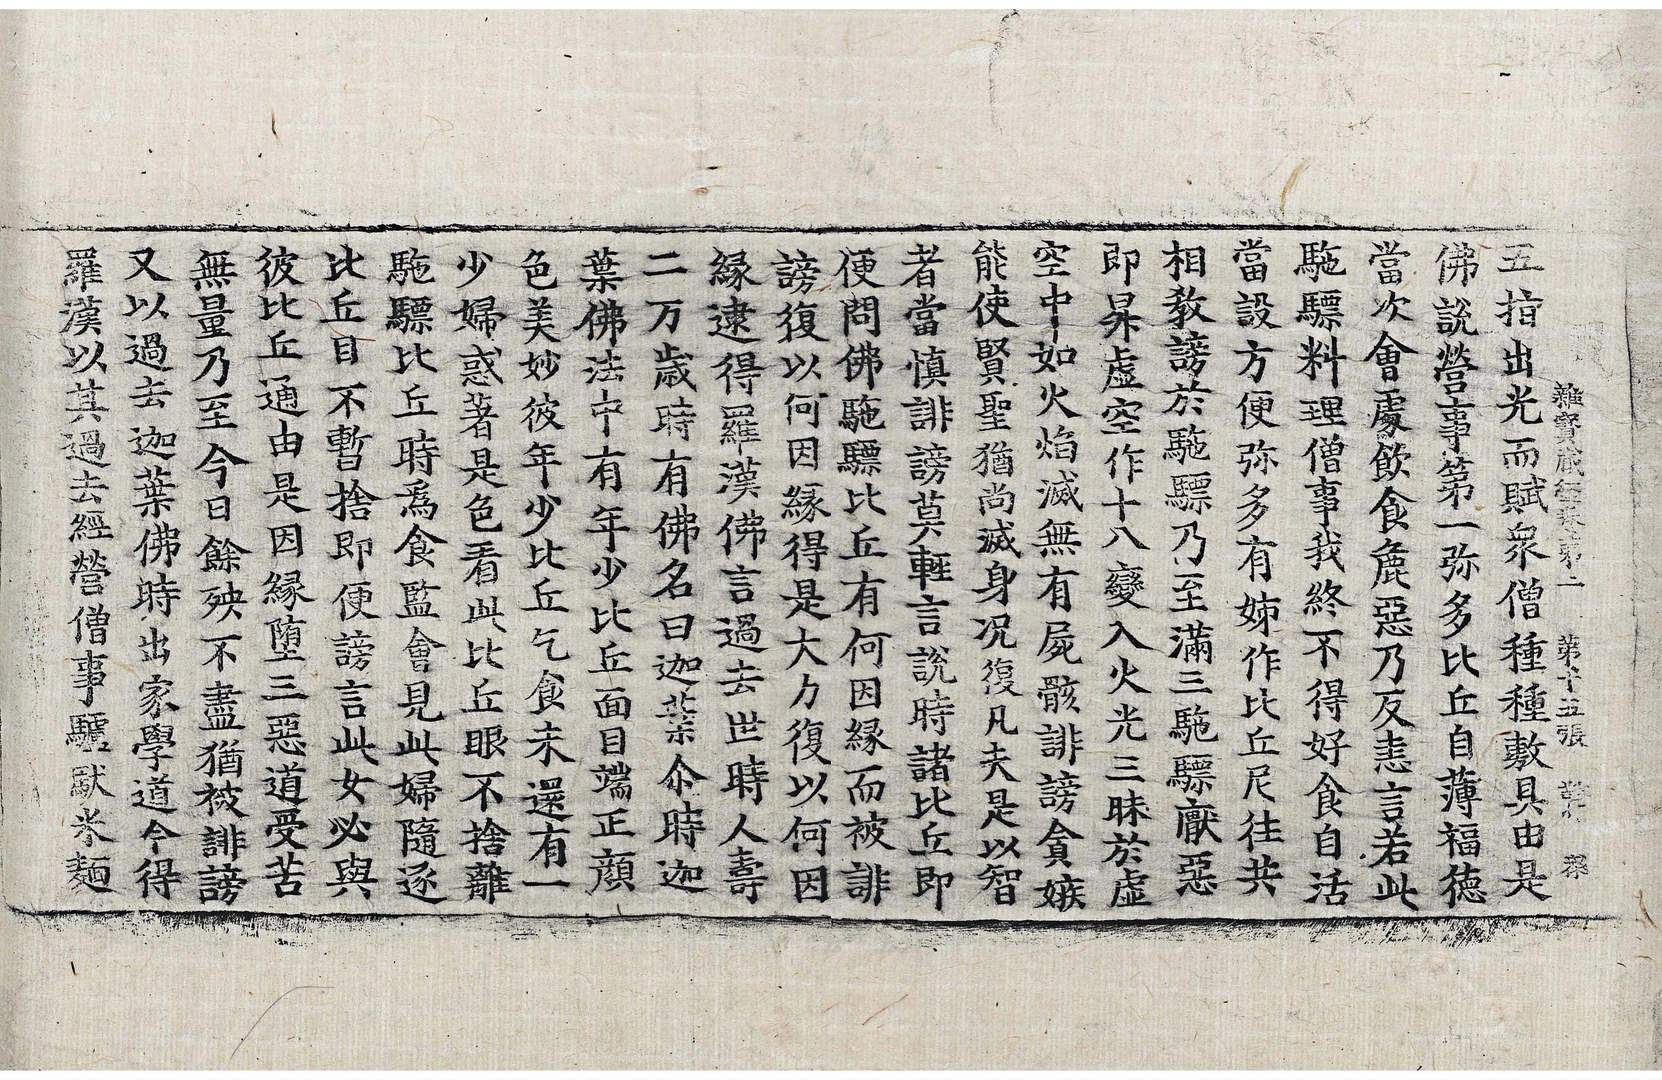 雜寳蔵經卷第二　第十五張
五指出光而賦衆僧種種敷具由是
佛說營事第一弥多比丘自薄福德
當次會處飲食麁惡乃反恚言若此
駞驃料理僧事我終不得好食自活
當設方便弥多有姊作比丘尼往共
相教謗於駞驃乃至滿三駞驃厭惡
即昇虛空作十八變入火光三昧於虛
空中如火焰滅無有屍骸誹謗貪嫉
能使賢聖猶尚滅身况復凡夫是以智
者當慎誹謗莫輕言說時諸比丘即
便問佛駞驃比丘有何因縁而被誹
謗復以何因縁得是大力復以何因
縁逮得羅漢佛言過去世時人壽
二万歳時有佛名曰迦葉尒時迦
葉佛法中有年少比丘面目端正顔
色美妙彼年少比丘乞食未還有一
少婦惑著是色看此比丘眼不捨離
駞驃比丘時爲食監會見此婦隨逐
比丘目不暫捨即便謗言此女必與
彼比丘通由是因縁墮三惡道受苦
無量乃至今日餘殃不盡猶被誹謗
又以過去迦葉佛時出家學道今得
羅漢以其過去經營僧事驢馱米麵